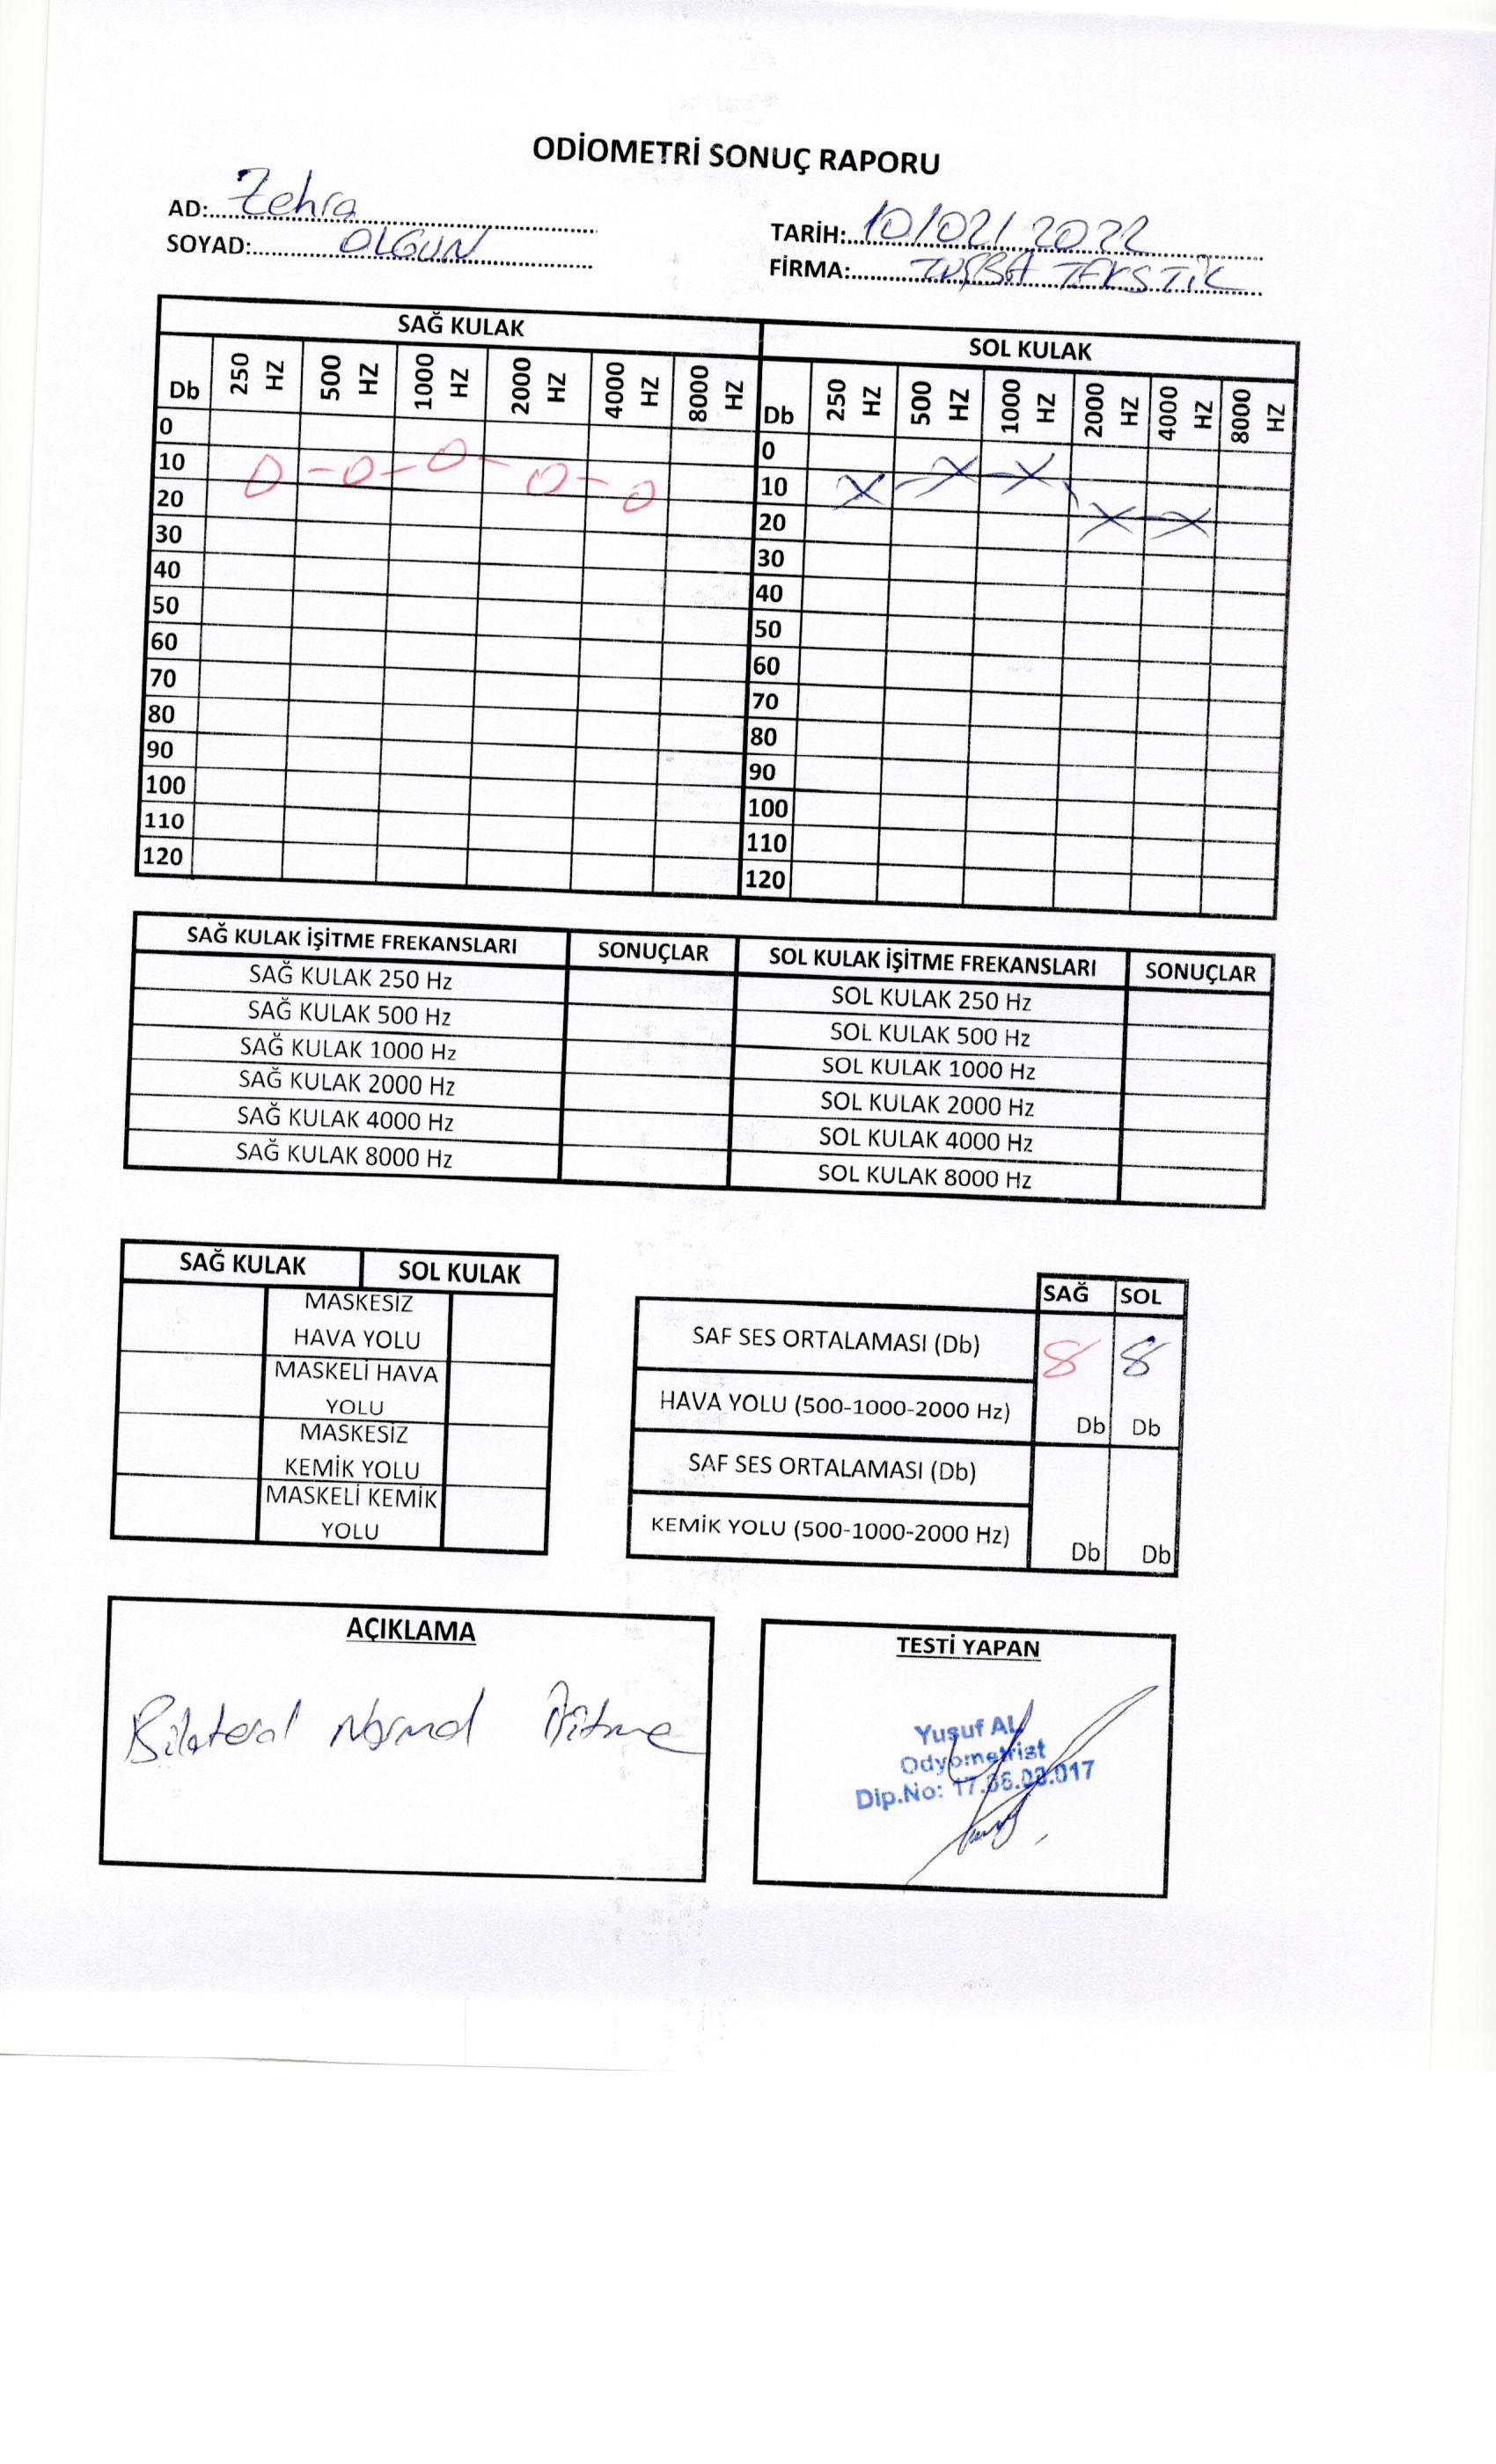 ODİOMETRİ SONUÇ RAPORU
AD: Zehra
SOYAD: OLGUN
TARİH: 10/02/2022
FİRMA: TUŞBA TEKSTİL
SAĞ KULAK SOL KULAK
Db 250 HZ 500 HZ 1000 HZ 2000 HZ 4000 HZ 8000 HZ Db 250 HZ 500 HZ 1000 HZ 2000 HZ 4000 HZ 8000 HZ
0 0
10 10
20 20
30 30
40 40
50 50
60 60
70 70
80 80
90 90
100 100
110 110
120 120
SAĞ KULAK İŞİTME FREKANSLARI SONUÇLAR SOL KULAK İŞİTME FREKANSLARI SONUÇLAR
SAĞ KULAK 250 Hz SOL KULAK 250 Hz
SAĞ KULAK 500 Hz SOL KULAK 500 Hz
SAĞ KULAK 1000 Hz SOL KULAK 1000 Hz
SAĞ KULAK 2000 Hz SOL KULAK 2000 Hz
SAĞ KULAK 4000 Hz SOL KULAK 4000 Hz
SAĞ KULAK 8000 Hz SOL KULAK 8000 Hz
SAĞ KULAK SOL KULAK
MASKESİZ
HAVA YOLU
MASKELİ HAVA
YOLU
MASKESİZ
KEMİK YOLU
MASKELİ KEMİK
YOLU
SAĞ SOL
SAF SES ORTALAMASI (Db) 8 8
HAVA YOLU (500-1000-2000 Hz) Db Db
SAF SES ORTALAMASI (Db)
KEMİK YOLU (500-1000-2000 Hz) Db Db
AÇIKLAMA
Bilateral Normal İşitme
TESTİ YAPAN
Yusuf AL
Odyometrist
Dip.No: 17.36.03.017